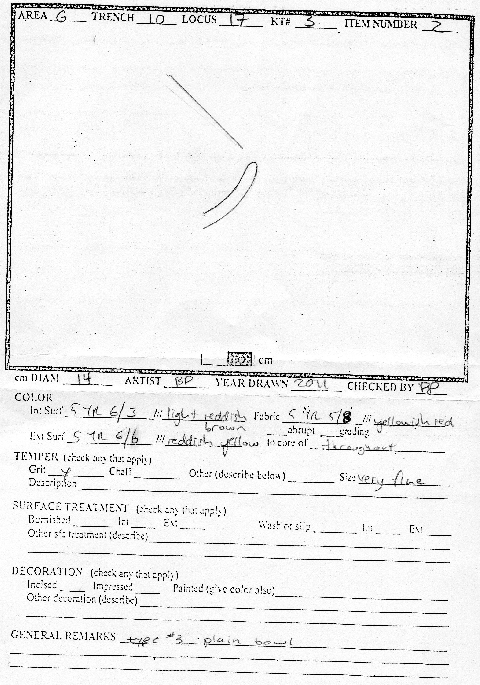 AREA G TRENCH 10 LOCUS 17 KT# 3 ITEM NUMBER 2
cm
cm DIAM 14 ARTIST BP YEAR DRAWN 2011 CHECKED BY BP
COLOR
Int Surf 5 YR 6/3 /// light reddish brown Fabric 5 YR 5/8 /// yellowish red
Ext Surf 5 YR 6/6 /// reddish yellow abrupt grading
core of throughout
TEMPER (check any that apply)
Grit y Chaff Other (describe below) Size very fine
Description
SURFACE TREATMENT (check any that apply)
Burnished Int Ext Wash or slip Int Ext
Other sfc treatment (describe)
DECORATION (check any that apply)
Incised Impressed Painted (give color also)
Other decoration (describe)
GENERAL REMARKS type #3 plain bowl